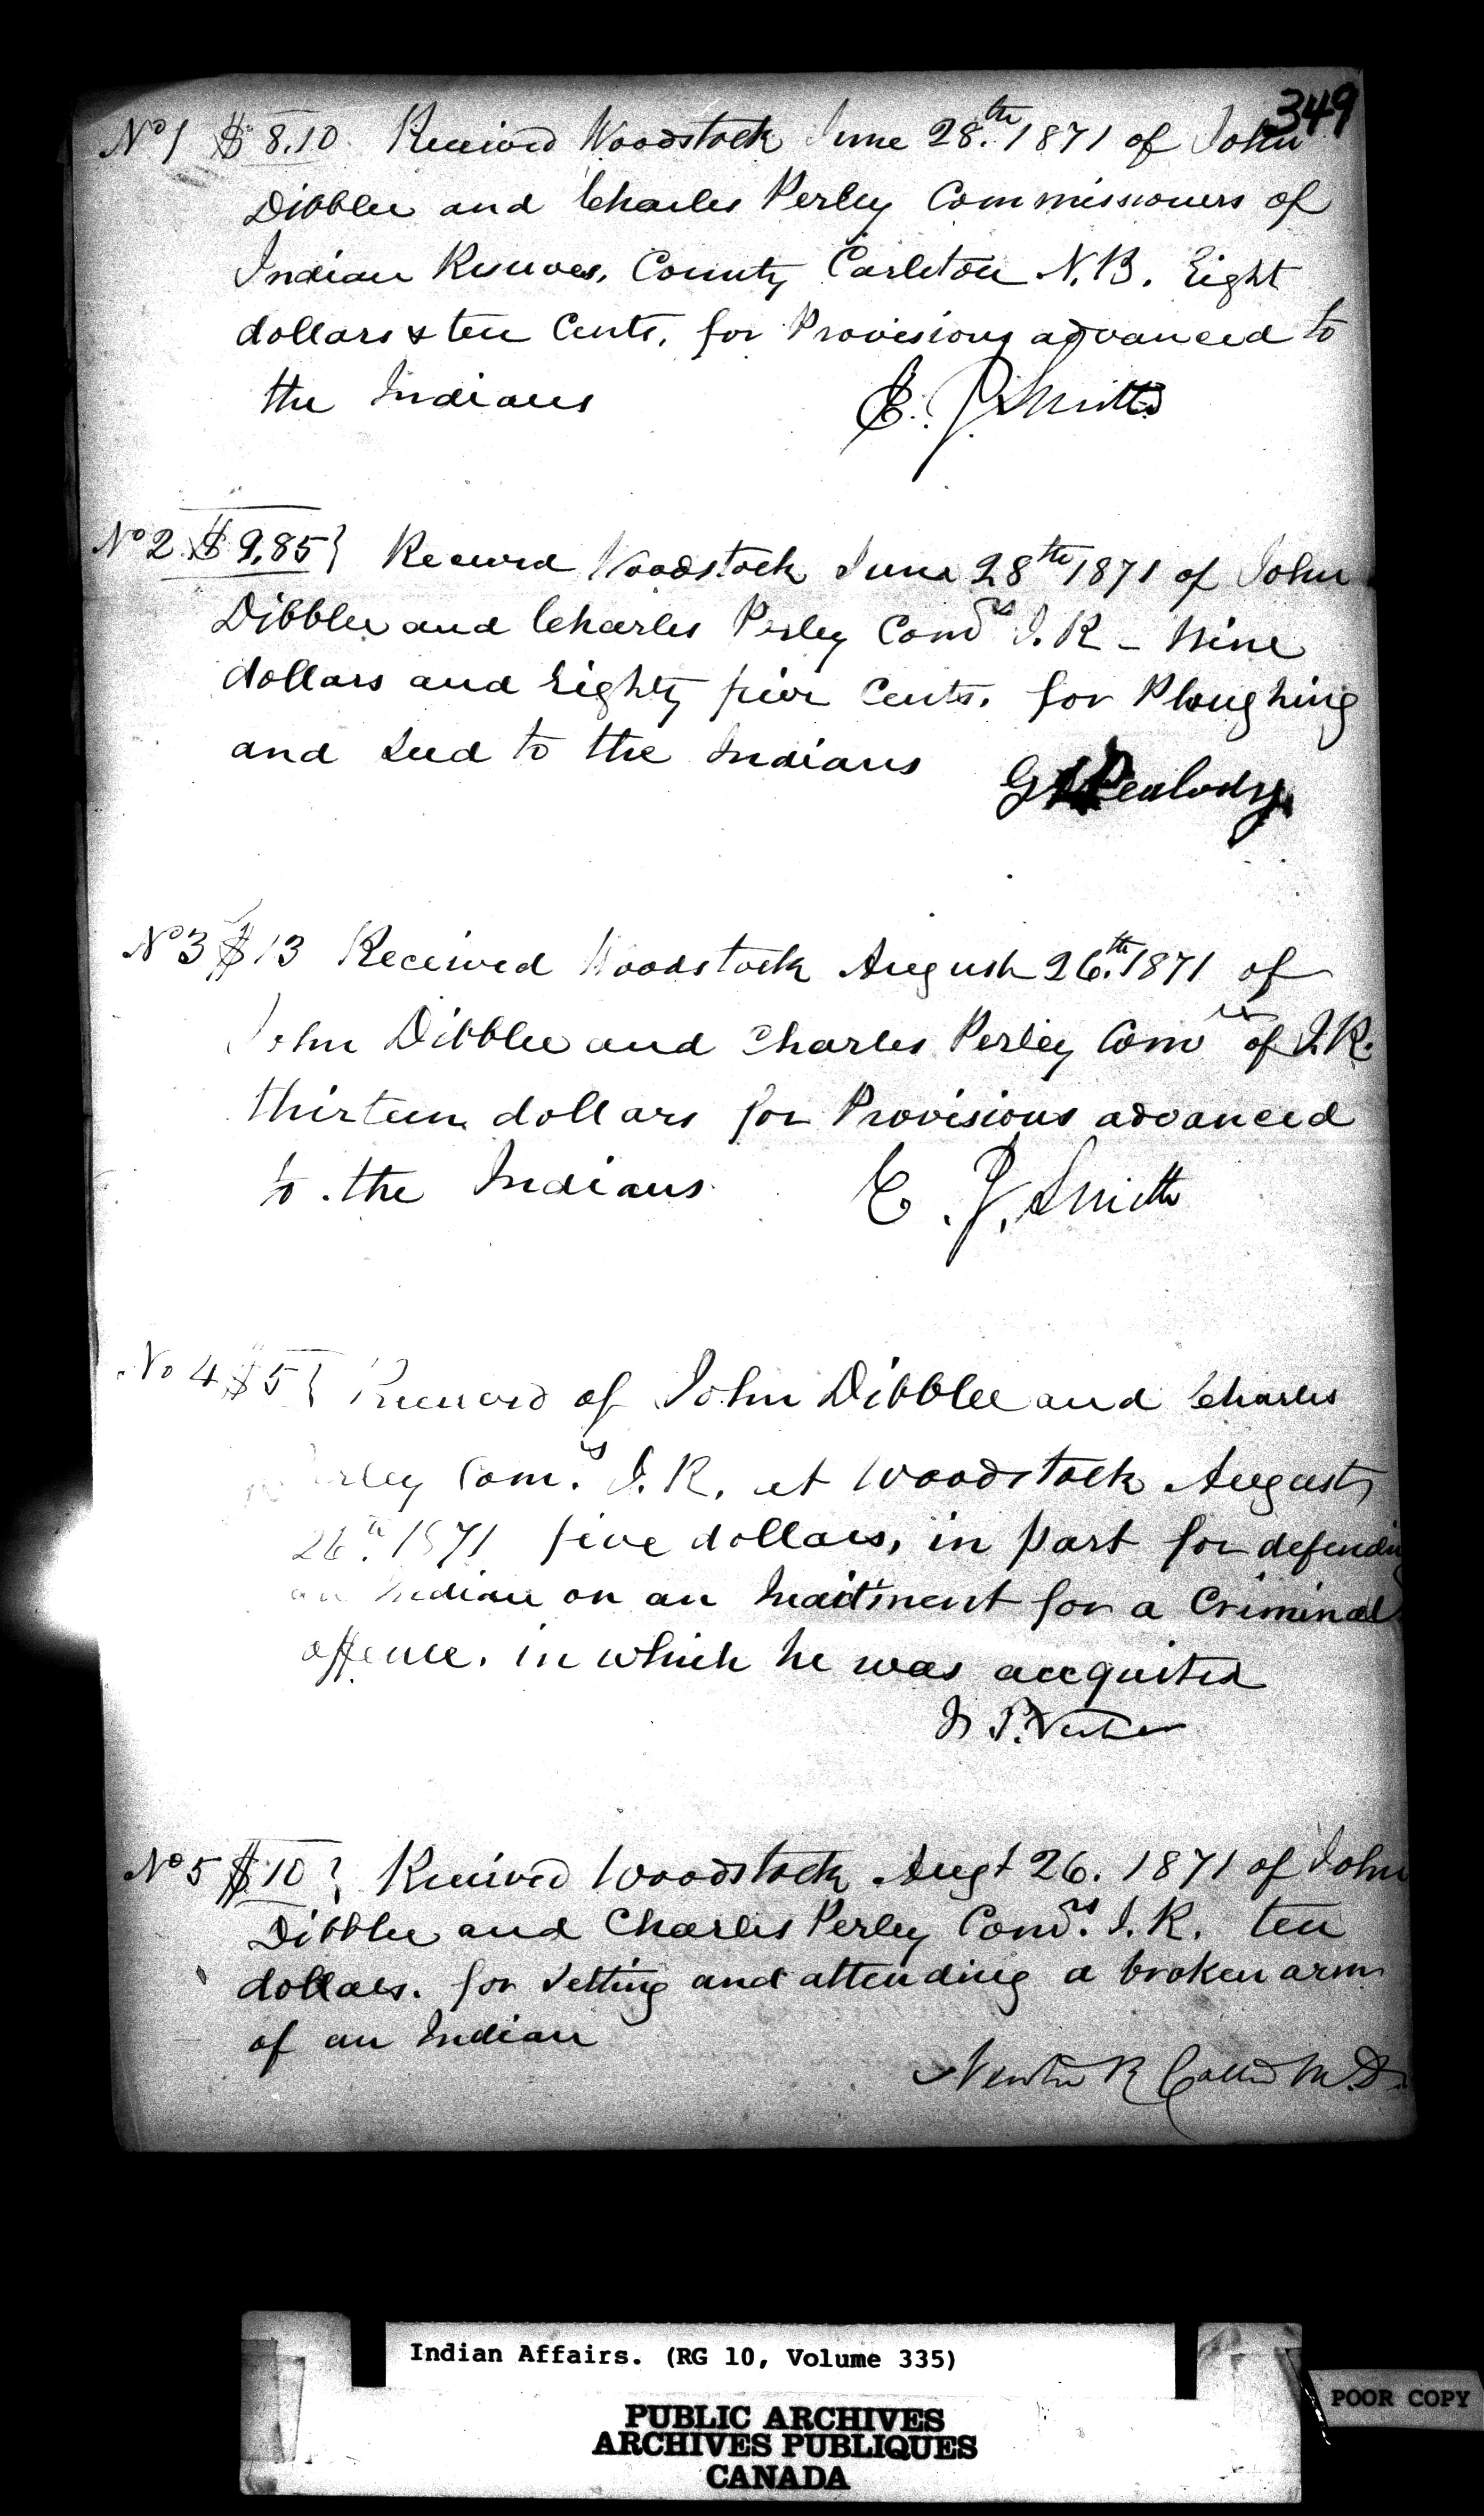 349
No 1 $ 8.10 Received Woodstock June 28.th 1871 of John
Dibblee and Charles Perley Commissioners of
Indian Reserves, County Carleton N.B. Eight
dollars & ten Cents, for Provisions advanced to
the Indians E. J. Smith
No 2 $ 9.85 } Received Woodstock June 28th 1871 of John
Dibblee and Charles Perley Comrs I. R - Nine
dollars and Eighty five Cents. for Ploughing
and Seed to the Indians G Peabody
No 3 $13 Received Woodstock August 26.th 1871 of
John Dibblee and Charles Perley Comrs of I.R.
thirteen dollars for Provisions advanced
to the Indians E. J. Smith
No 4 $5 } Received of John Dibblee and Charles
Perley Com.rs I. R. at Woodstock August
26th. 1871 five dollars, in part for defending
an Indian on an Inditment for a Criminal
offence. in which he was accquited
No 5 $10 } Received Woodstock Augt 26. 1871 of John
Dibblee and Charles Perley Comrs. I. R. ten
dollars. for Setting and attending a broken arm
of an Indian
Newton R M.D.
Indian Affairs. (RG 10, Volume 335)
PUBLIC ARCHIVES
ARCHIVES PUBLIQUES
CANADA
POOR COPY